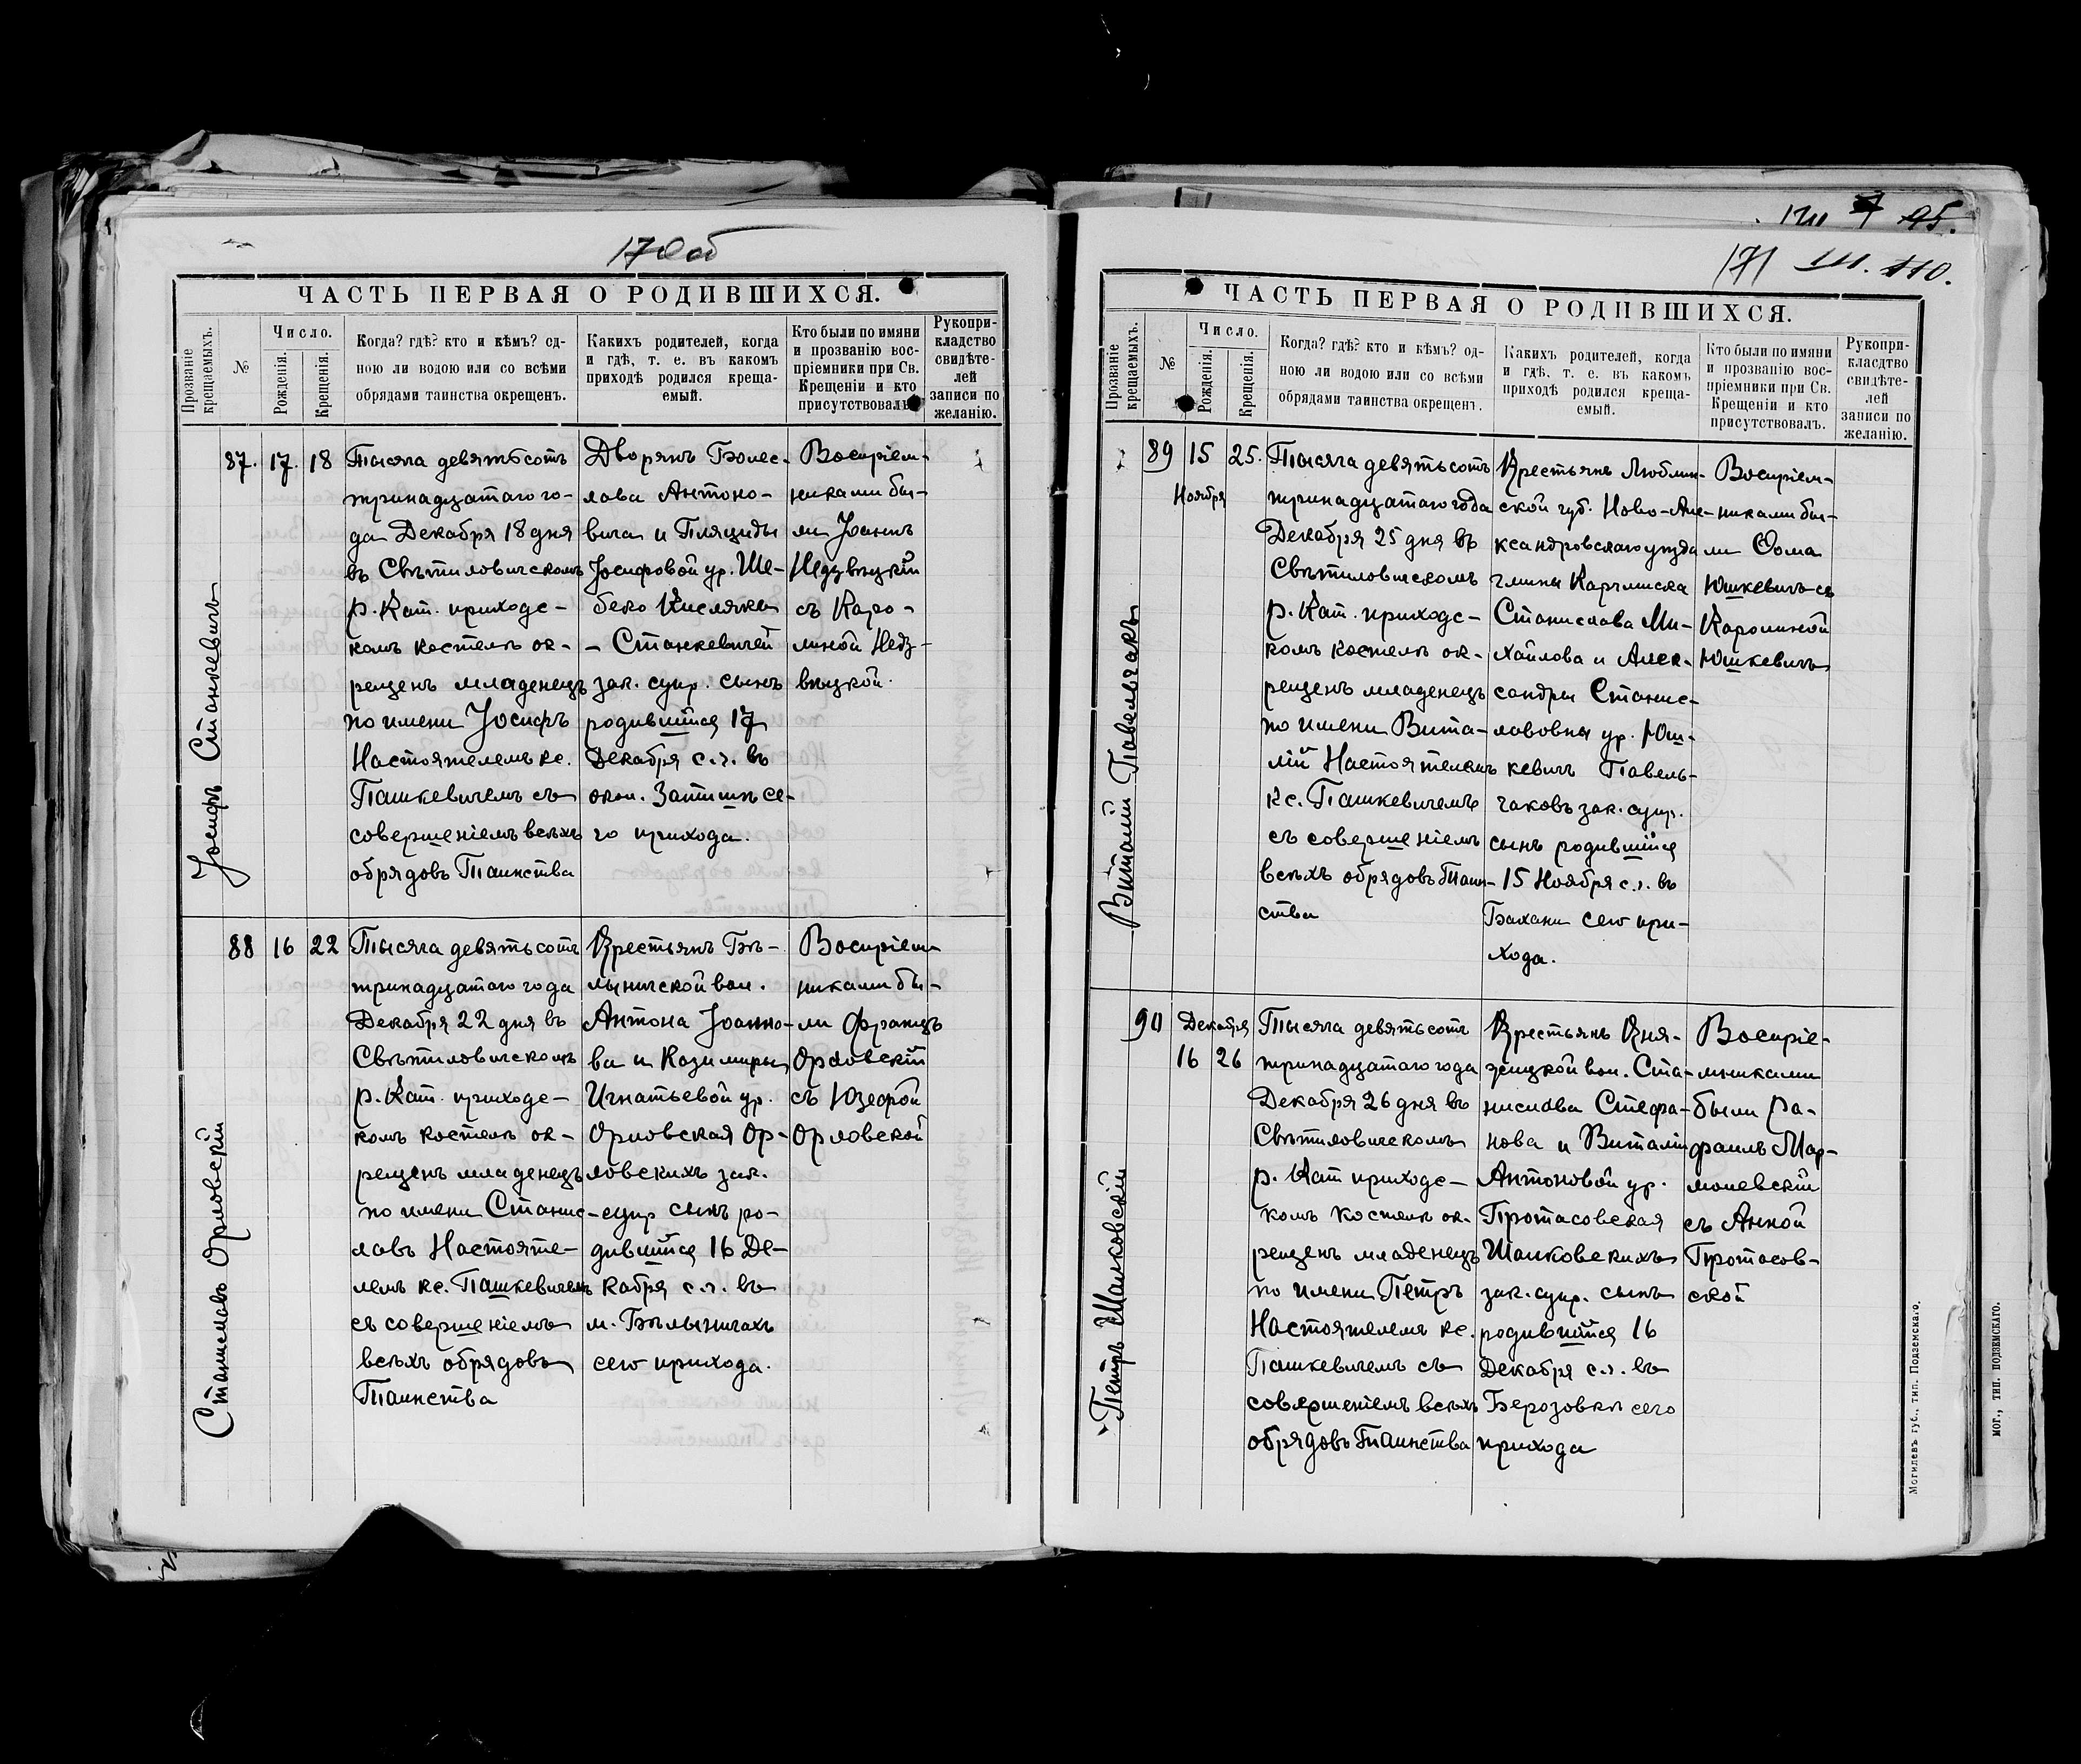 170об
ЧАСТЬ ПЕРВАЯ О РОДИВШИХСЯ.
Прозваніе крещаемыхъ.
№
Число.
Рожденія.
Крещенія.
Когда? гдѣ? кто и кѣмъ? од-
ною ли водою или со всѣми
обрядами таинства окрещенъ.
Какихъ родителей, когда
и гдѣ, т. е. въ какомъ
приходѣ родился креща-
емый.
Кто были по имяни
и прозванію вос-
пріемники при Св.
Крещеніи и кто
присутствовалъ.
Рукопри-
кладство
свидѣте-
лей
записи по
желанію.
Іосифъ Станкевичъ
87. 17. 18
Тысяча девятьсотъ
тринадцатаго го-
да Декабря 18 дня
въ Свѣтиловичскомъ
р. Кат. приходс-
комъ костелѣ ок-
рещенъ младенецъ
по имени Іосифъ
Настоятелемъ кс.
Пашкевичемъ съ
совершеніемъ всѣхъ
обрядовъ Таинства
Дворянъ Болес-
лава Антоно-
вича и Пляциды
Іосифовой ур. Ше-
беко Кислякъ
- Станкевичей
зак. супр. сынъ
родившійся 17
Декабря с.г. въ
окол. Затишьѣ се-
го прихода.
Воспріем-
никами бы-
ли Іоаннъ
Недзвѣцкій
съ Каро-
линой Недз-
вѣцкой.
Станиславъ Орловскій
88 16 22
Тысяча девятьсотъ
тринадцатаго года
Декабря 22 дня въ
Свѣтиловичскомъ
р. Кат. приходс-
комъ костелѣ ок-
рещенъ младенецъ
по имени Станис-
лавъ Настояте-
лемъ кс. Пашкевичемъ
съ совершеніемъ
всѣхъ обрядовъ
Таинства
Крестьянъ Бѣ-
лыничской вол.
Антона Іоанно-
ва и Казимиры
Игнатьевой ур.
Орловская Ор-
ловскихъ зак.
супр сынъ ро-
дившійся 16 Де-
кабря с.г. въ
м. Бѣлыничахъ
сего прихода.
Воспріем-
никами бы-
ли Францъ
Орловскій
съ Юзефой
Орловской
95.
171 111. 110.
ЧАСТЬ ПЕРВАЯ О РОДИВШИХСЯ.
Прозваніе крещаемыхъ.
№
Число.
Рожденія.
Крещенія.
Когда? гдѣ? кто и кѣмъ? од-
ною ли водою или со всѣми
обрядами таинства окрещенъ.
Какихъ родителей, когда
и гдѣ, т. е. въ какомъ
приходѣ родился креща-
емый.
Кто были по имяни
и прозванію вос-
пріемники при Св.
Крещеніи и кто
присутствовалъ.
Рукопри-
класдтво
свидѣте-
лей
записи по
желанію.
Виталій Павельчакъ
89 15 25.
Ноября
Тысяча девятьсотъ
тринадцатаго года
Декабря 25 дня въ
Свѣтиловичскомъ
р. Кат. приходс-
комъ костелѣ ок-
рещенъ младенецъ
по имени Вита-
лій Настоятелемъ
кс. Пашкевичемъ
съ совершеніемъ
всѣхъ обрядовъ Таин-
ства
Крестьянъ Люблин-
ской губ. Ново-Але-
ксандровскаго уѣзда
гмины Карчмиска
Станислава Ми-
хайлова и Алек-
сандры Станис-
лавовны ур. Юш-
кевичъ Павель-
чаковъ зак. супр.
сынъ родившійся
15 Ноября с.г. въ
Бахани сего при-
хода.
Воспріем-
никами бы-
ли Ѳома
Юшкевичъ съ
Каролиной
Юшкевичъ
Петръ Шанковскій
90 Декабря
16 26
Тысяча девятьсотъ
тринадцатаго года
Декабря 26 дня въ
Свѣтиловичскомъ
р. Кат приходс-
комъ костелѣ ок-
рещенъ младенецъ
по имени Петръ
Настоятелемъ кс.
Пашкевичемъ съ
совершеніемъ всѣхъ
обрядовъ Таинства
Крестьянъ Кня-
жицкой вол. Ста-
нислава Стефа-
нова и Виталіи
Антоновой ур.
Протасовская
Шанковскихъ
зак. супр. сынъ
родившійся 16
Декабря с.г. въ
Березовкѣ сего
прихода
Воспріе-
мниками
были Ра-
фаилъ Мар-
молевскій
съ Анной
Протасов-
ской
Могилевъ губ., тип. Подземскаго.
МОГ., ТИП. ПОДЗЕМСКАГО.